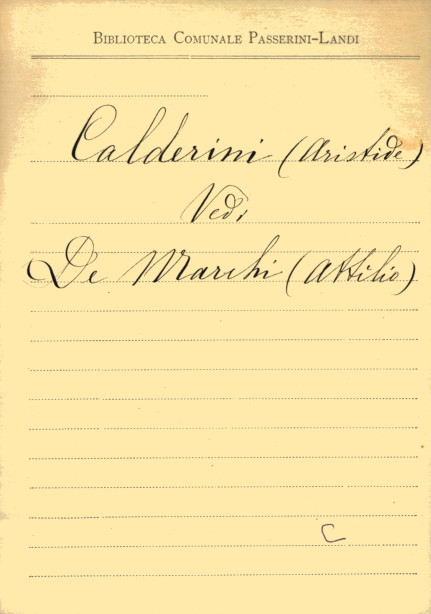 Biblioteca Comunale Passerini-Landi
Calderini (Aristide)
Vedi
De Marchi (Attilio)
C